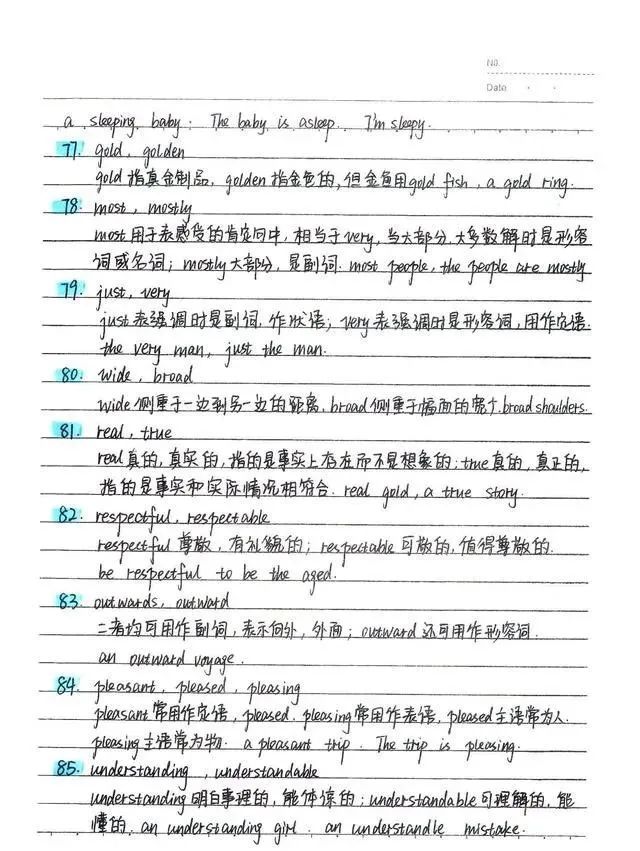 No.
Date
a sleeping baby. The baby is asleep. I'm sleepy.
77. gold, golden
gold指真金制品, golden指金色的, 但金鱼用gold fish, a gold ring.
78. most, mostly
most用于表感受的肯定句中, 相当于very, 当大部分, 大多数解时是形容
词或名词; mostly大部分, 是副词. most people, the people are mostly
79. just, very
just表强调时是副词, 作状语; very表强调时是形容词, 用作定语.
the very man, just the man.
80. wide, broad
wide侧重于一边到另一边的距离, broad侧重于幅面的宽广. broad shoulders.
81. real, true
real真的, 真实的, 指的是事实上存在而不是想象的; true真的, 真正的,
指的是事实和实际情况相符合. real gold, a true story.
82. respectful, respectable
respectful尊敬, 有礼貌的; respectable可敬的, 值得尊敬的.
be respectful to be the aged.
83. outwards, outward
二者均可用作副词, 表示向外, 外面; outward还可用作形容词.
an outward voyage.
84. pleasant, pleased, pleasing
pleasant常用作定语, pleased, pleasing常用作表语, pleased主语常为人.
pleasing主语常为物. a pleasant trip. The trip is pleasing.
85. understanding, understandable
understanding明白事理的, 能体谅的; understandable可理解的, 能
懂的. an understanding girl. an understandle mistake.